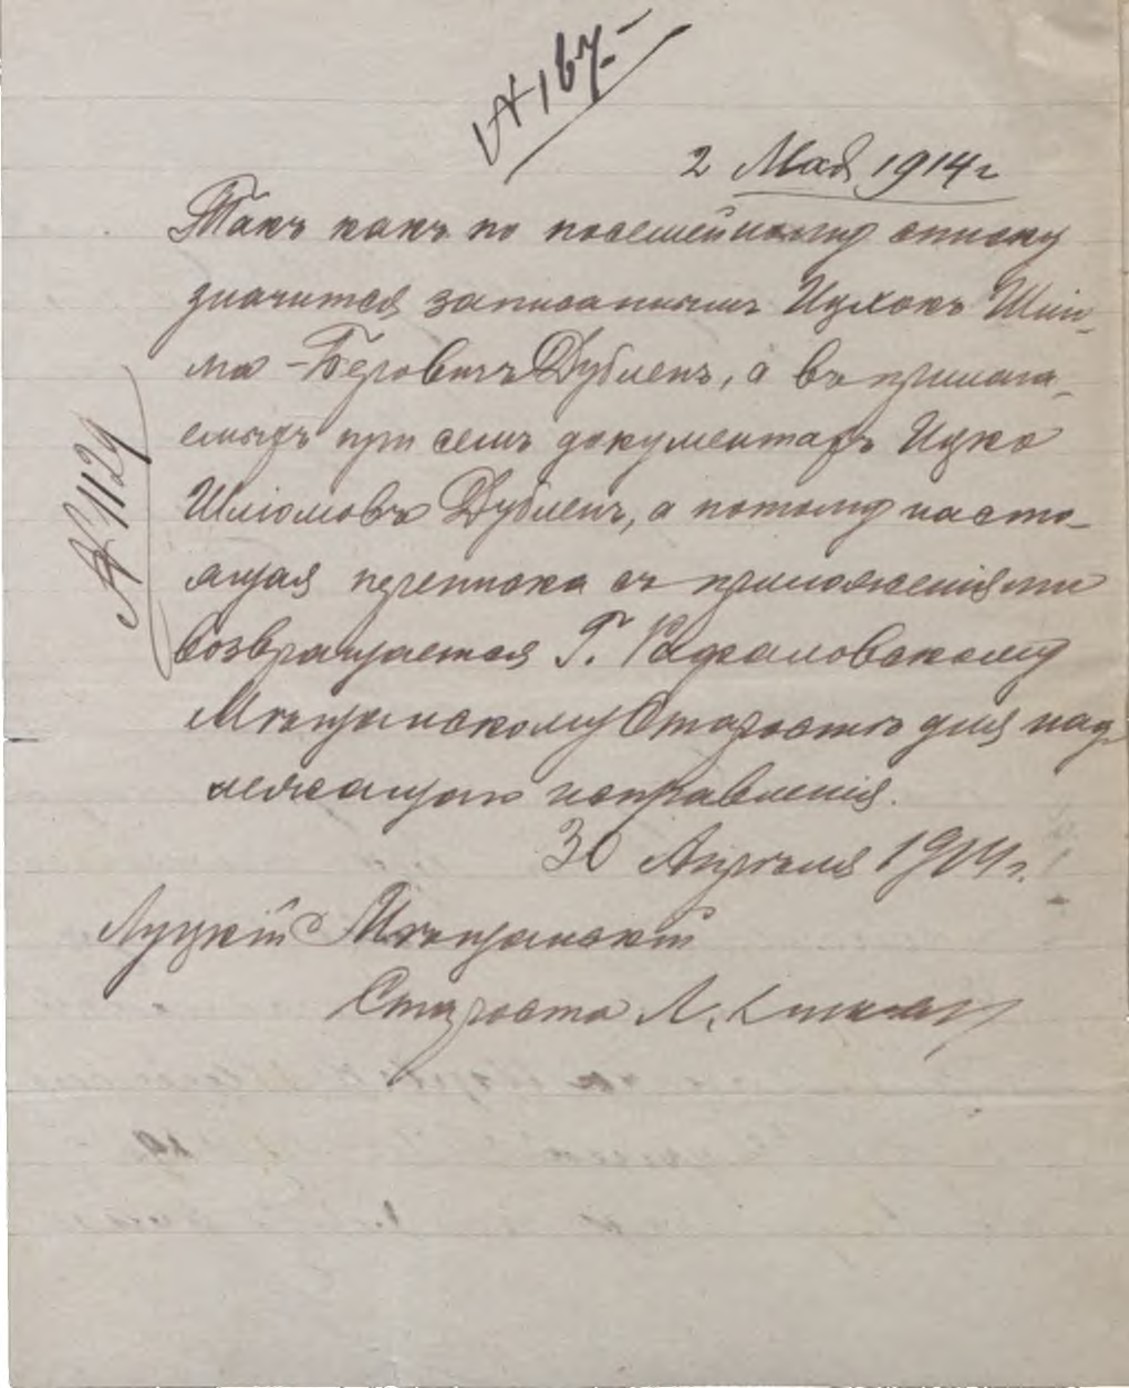 № 167.
2 Мая 1914 г
Такъ какъ по посемейному списку
значится записанымъ Ицхокъ Шлио-
ма-Беровичъ Дублеръ, а въ прилага-
емыхъ при семъ документахъ Ицко
Шлiомовъ Дублеръ, а потому насто-
ящая переписка съ приложенiями
возвращается Г. Рафаловскому
Мѣщанскому Старостѣ для над-
лежащаго исправленiя.
30 Апрѣля 1914 г.
№ 1129
Луцкiй Мѣщанскiй
Староста Л.